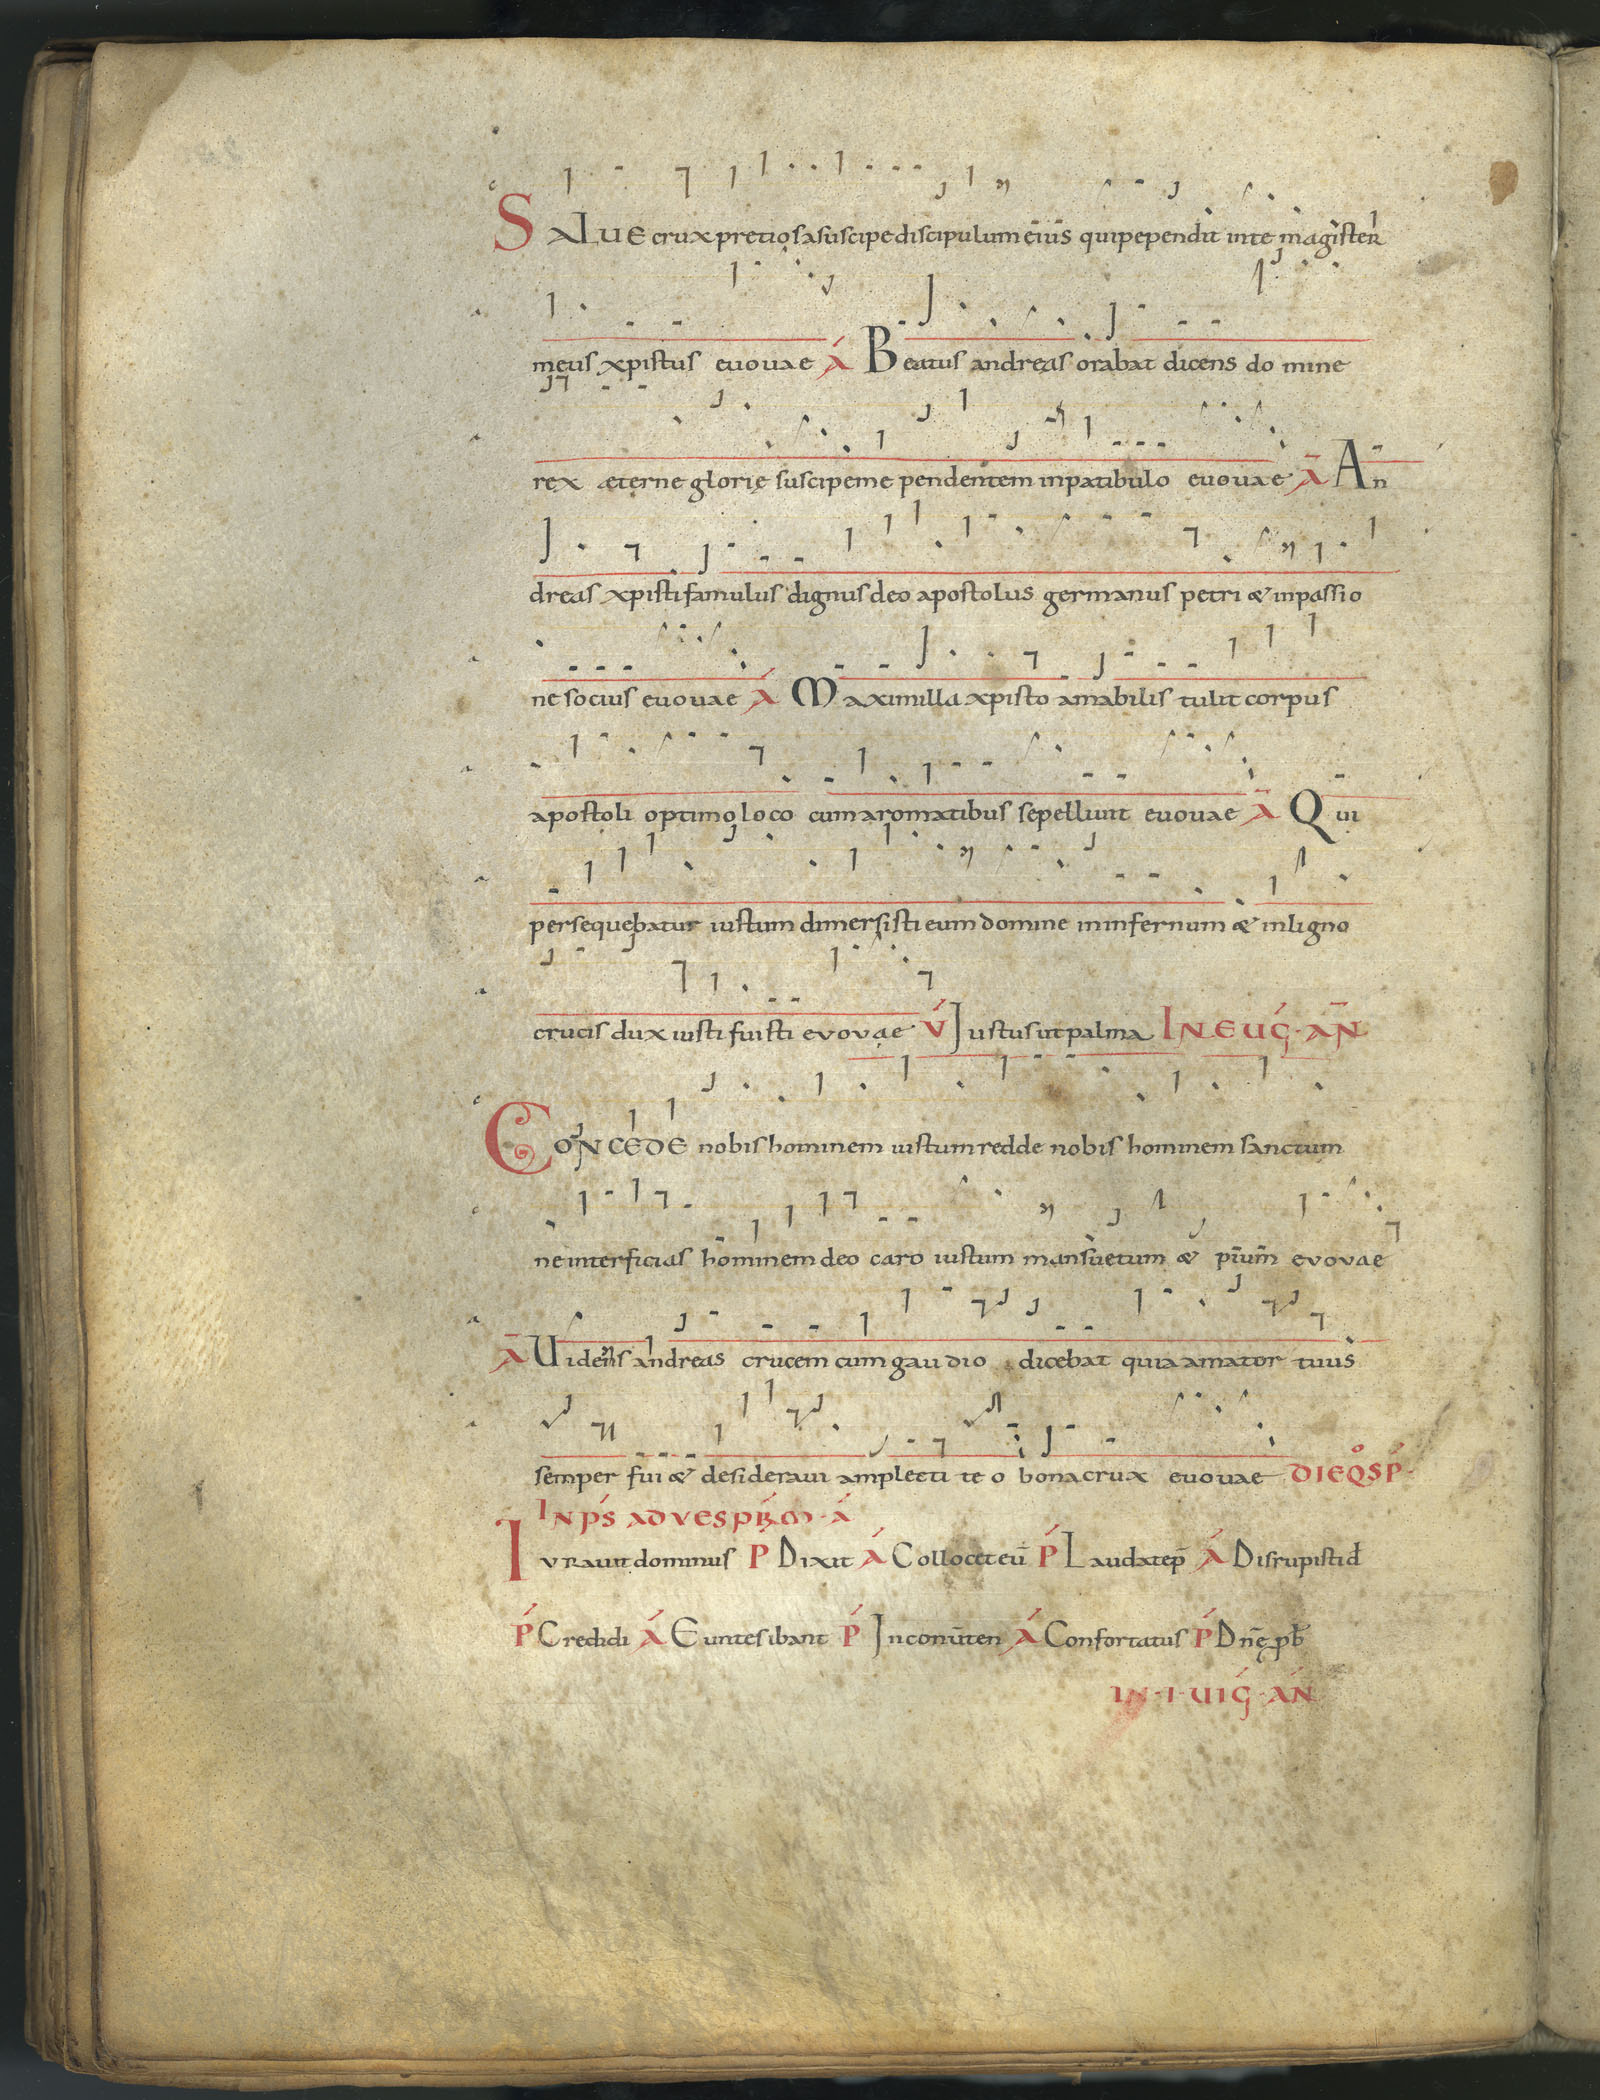 SALUE crux pretiosa suscipe discipulum eius qui pependit in te magister
meus xpistus euouae A Beatus andreas orabat dicens do mine
rex æterne glorię suscipe me pendentem in patibulo euouae A An
dreas xpisti famulus dignus deo apostolus germanus petri & in passio
ne socius euouae A Maximilla xpisto amabilis tulit corpus
apostoli optimo loco cum aromatibus sepellunt euouae A Qui
persequebatur iustum dimersisti eum domine in infernum & in ligno
crucis dux iusti fuisti evovae V Iustus ut palma IN EUG̅ · AN̅
CONCEDE nobis hominem iustum redde nobis hominem sanctum
ne interficias hominem deo caro iustum mansuetum & pium evovae
A Uidens andreas crucem cum gau dio dicebat quia amator tuus
semper fui & desideraui amplecti te o bona crux euouae DIE QͦS P̅
IN P̅S AD VESPRM · A
IVRauit dominus P Dixit A Collocet eu̅ P Laudate p̅ A Disrupisti d̅
P Credidi A Euntes ibant P In conu̅ten A Confortatus P Dn̅ę pb̅
IN · I · UIG̅ · AN̅